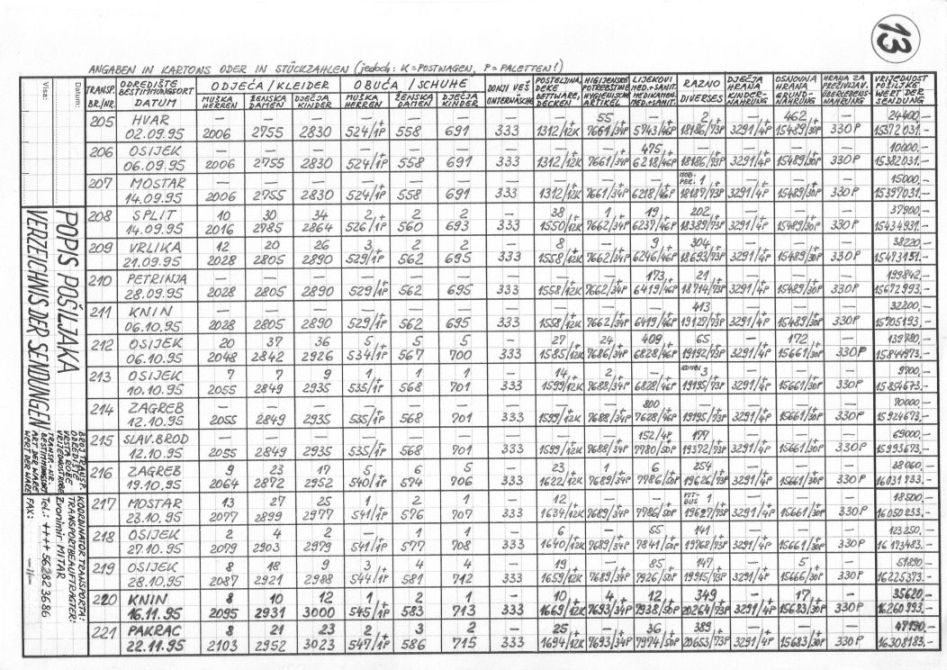 13
ANGABEN IN KARTONS ODER IN STÜCKZAHLEN (jedoch: K=POSTWAGEN, P=PALETTEN!)
TRANSP. BR./NR. ODREDIŠTE BESTIMMUNGSORT DATUM ODJEĆA / KLEIDER MUŠKA HERREN ŽENSKA DAMEN DJEČJA KINDER OBUĆA / SCHUHE MUŠKA HERREN ŽENSKA DAMEN DJEČJA KINDER DONJI VEŠ UNTERWÄSCHE POSTELJINA, DEKE BETTWARE, DECKEN HIGIJENSKE POTREBŠTINE HYGIENISCHE ARTIKEL LIJEKOVI MED.+SANIT. MEDIKAMEN. MED.+SANIT. RAZNO DIVERSES DJEČJA HRANA KINDER-NAHRUNG OSNOVNA HRANA GRUND-NAHRUNG HRANA ZA PREŽIVLJAV. ÜBERLEBENS-NAHRUNG VRIJEDNOST POŠILJKE WERT DER SENDUNG
205 HVAR — — — — — — — — 55 — 2 — 462 — 24400,-
02.09.95 2006 2755 2830 524/1P 558 691 333 1312/12K 7661/34P 5743/46P 18186/73P 3291/4P 15489/30P 330P 15372031.-
206 OSIJEK — — — — — — — — — 475 — — — — 10000,-
06.09.95 2006 2755 2830 524/1P 558 691 333 1312/12K 7661/34P 6218/46P 18186/73P 3291/4P 15489/30P 330P 15382031.-
207 MOSTAR — — — — — — — — — — 1 — — — 15000,-
14.09.95 2006 2755 2830 524/1P 558 691 333 1312/12K 7661/34P 6218/46P 18187/73P 3291/4P 15489/30P 330P 15397031.-
208 SPLIT 10 30 34 2 2 2 — 38 1 19 202 — — — 37900,-
14.09.95 2016 2785 2864 526/1P 560 693 333 1550/12K 7662/34P 6237/46P 18389/73P 3291/4P 15489/30P 330P 15434931.-
209 VRLIKA 12 20 26 3 2 2 — 8 — 9 304 — — — 38220,-
21.09.95 2028 2805 2890 529/1P 562 695 333 1558/12K 7662/34P 6246/46P 18693/73P 3291/4P 15489/30P 330P 15473151.-
210 PETRINJA — — — — — — — — — 173 21 — — — 199842,-
28.09.95 2028 2805 2890 529/1P 562 695 333 1558/12K 7662/34P 6419/46P 18714/73P 3291/4P 15489/30P 330P 15672993.-
211 KNIN — — — — — — — — — — 413 — — — 32200,-
06.10.95 2028 2805 2890 529/1P 562 695 333 1558/12K 7662/34P 6419/46P 19127/73P 3291/4P 15489/30P 330P 15705193.-
212 OSIJEK 20 37 36 5 5 5 — 27 24 409 65 — 172 — 139780,-
06.10.95 2048 2842 2926 534/1P 567 700 333 1585/12K 7686/34P 6828/46P 19192/73P 3291/4P 15661/30P 330P 15844973.-
213 OSIJEK 7 7 9 1 1 1 — 14 2 — 3 — — — 9700,-
10.10.95 2055 2849 2935 535/1P 568 701 333 1599/12K 7688/34P 6828/46P 19195/73P 3291/4P 15661/30P 330P 15854673.-
214 ZAGREB — — — — — — — — — 800 — — — — 70000,-
12.10.95 2055 2849 2935 535/1P 568 701 333 1599/12K 7688/34P 7628/46P 19195/73P 3291/4P 15661/30P 330P 15924673.-
215 SLAV. BROD — — — — — — — — — 152/4P 177 — — — 69000,-
12.10.95 2055 2849 2935 535/1P 568 701 333 1599/12K 7688/34P 7780/50P 19372/73P 3291/4P 15661/30P 330P 15993673.-
216 ZAGREB 9 23 17 5 6 5 — 23 1 6 254 — — — 38060,-
19.10.95 2064 2872 2952 540/1P 574 706 333 1622/12K 7689/34P 7786/50P 19626/73P 3291/4P 15661/30P 330P 16031733.-
217 MOSTAR 13 27 25 1 2 1 — 12 — — 1 — — — 18500,-
23.10.95 2077 2899 2977 541/1P 576 707 333 1634/12K 7689/34P 7786/50P 19627/73P 3291/4P 15661/30P 330P 16050233.-
218 OSIJEK 2 4 2 — 1 1 — 6 — 55 141 — — — 123250,-
27.10.95 2079 2903 2979 541/1P 577 708 333 1640/12K 7689/34P 7841/50P 19768/73P 3291/4P 15661/30P 330P 16173483.-
219 OSIJEK 8 18 9 3 4 4 — 19 — 85 147 — 5 — 51890,-
28.10.95 2087 2921 2988 544/1P 581 712 333 1659/12K 7689/34P 7926/50P 19915/73P 3291/4P 15666/30P 330P 16225373.-
220 KNIN 8 10 12 1 2 1 — 10 4 12 349 — 17 — 35620,-
16.11.95 2095 2931 3000 545/1P 583 713 333 1669/12K 7693/34P 7938/50P 20264/73P 3291/4P 15683/30P 330P 16260993.-
221 PAKRAC 8 21 23 2 3 2 — 25 — 36 389 — — — 47190,-
22.11.95 2103 2952 3023 547/1P 586 715 333 1694/12K 7693/34P 7974/50P 20653/73P 3291/4P 15683/30P 330P 16308183.-
Visa:
Datum:
POPIS POŠILJAKA
VERZEICHNIS DER SENDUNGEN
BROJ TRANSP.
ODREDIŠTE
VRSTA ROBE
VRIJEDNOST ROBE
TRANSP.-NR.
BESTIMMUNGSORT
ART DER WARE
WERT DER WARE
KOORDINATOR TRANSPORTA:
TRANSPORTBEAUFTRAGTER:
Zvonimir MITAR
Tel.: ++++ 56282 3686
FAX: —"—